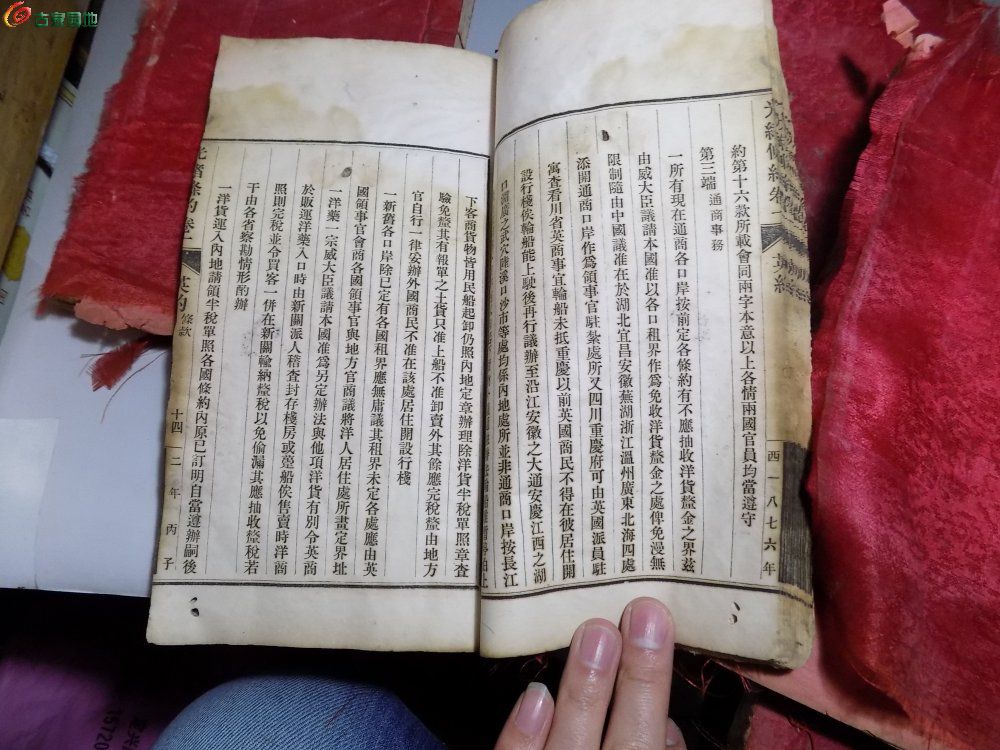 古家园地
約第十六款所載會同兩字本意以上各情兩國官員均當遵守
第三端 通商事務
一所有現在通商各口岸按前定各條約有不應抽收洋貨釐金之界茲
由威大臣議請本國准以各口租界作爲免收洋貨釐金之處俾免漫無
限制隨由中國議准在於湖北宜昌安徽蕪湖浙江溫州廣東北海四處
添開通商口岸作爲領事官駐紮處所又四川重慶府可由英國派員駐
寓查看川省英商事宜輪船未抵重慶以前英國商民不得在彼居住開
設行棧俟輪船能上駛後再行議辦至沿江安徽之大通安慶江西之湖
口湖廣之武穴陸溪口沙市等處均係內地處所並非通商口岸按長江
西一八七六年
下客商貨物皆用民船起卸仍照內地定章辦理除洋貨半稅單照章查
驗免釐其有報單之土貨只准上船不准卸賣外其餘應完稅釐由地方
官自行一律妥辦外國商民不准在該處居住開設行棧
一新舊各口岸除已定有各國租界應無庸議其租界未定各處應由英
國領事官會商各國領事官與地方官商議將洋人居住處所畫定界址
一洋藥一宗威大臣議請本國准爲另定辦法與他項洋貨有別令英商
於販運洋藥入口時由新關派人稽查封存棧房或躉船俟售賣時洋商
照則完稅並令買客一併在新關輸納釐稅以免偷漏其應抽收釐稅若
干由各省察勘情形酌辦
一洋貨運入內地請領半稅單照各國條約內原已訂明自當遵辦嗣後
光緒條約卷一 英約 條款 十四 二年丙子
15720